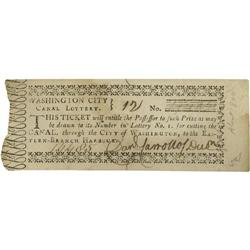 WASHINGTON CITY
CANAL LOTTERY. No.
THIS TICKET will entitle the Possessor to such Prize as may
be drawn to its Number in Lottery No. 1. for cutting the
CANAL, through the CITY of WASHINGTON, to the EAS-
TERN-BRANCH HARBOUR.
Danl Carroll of Dudn